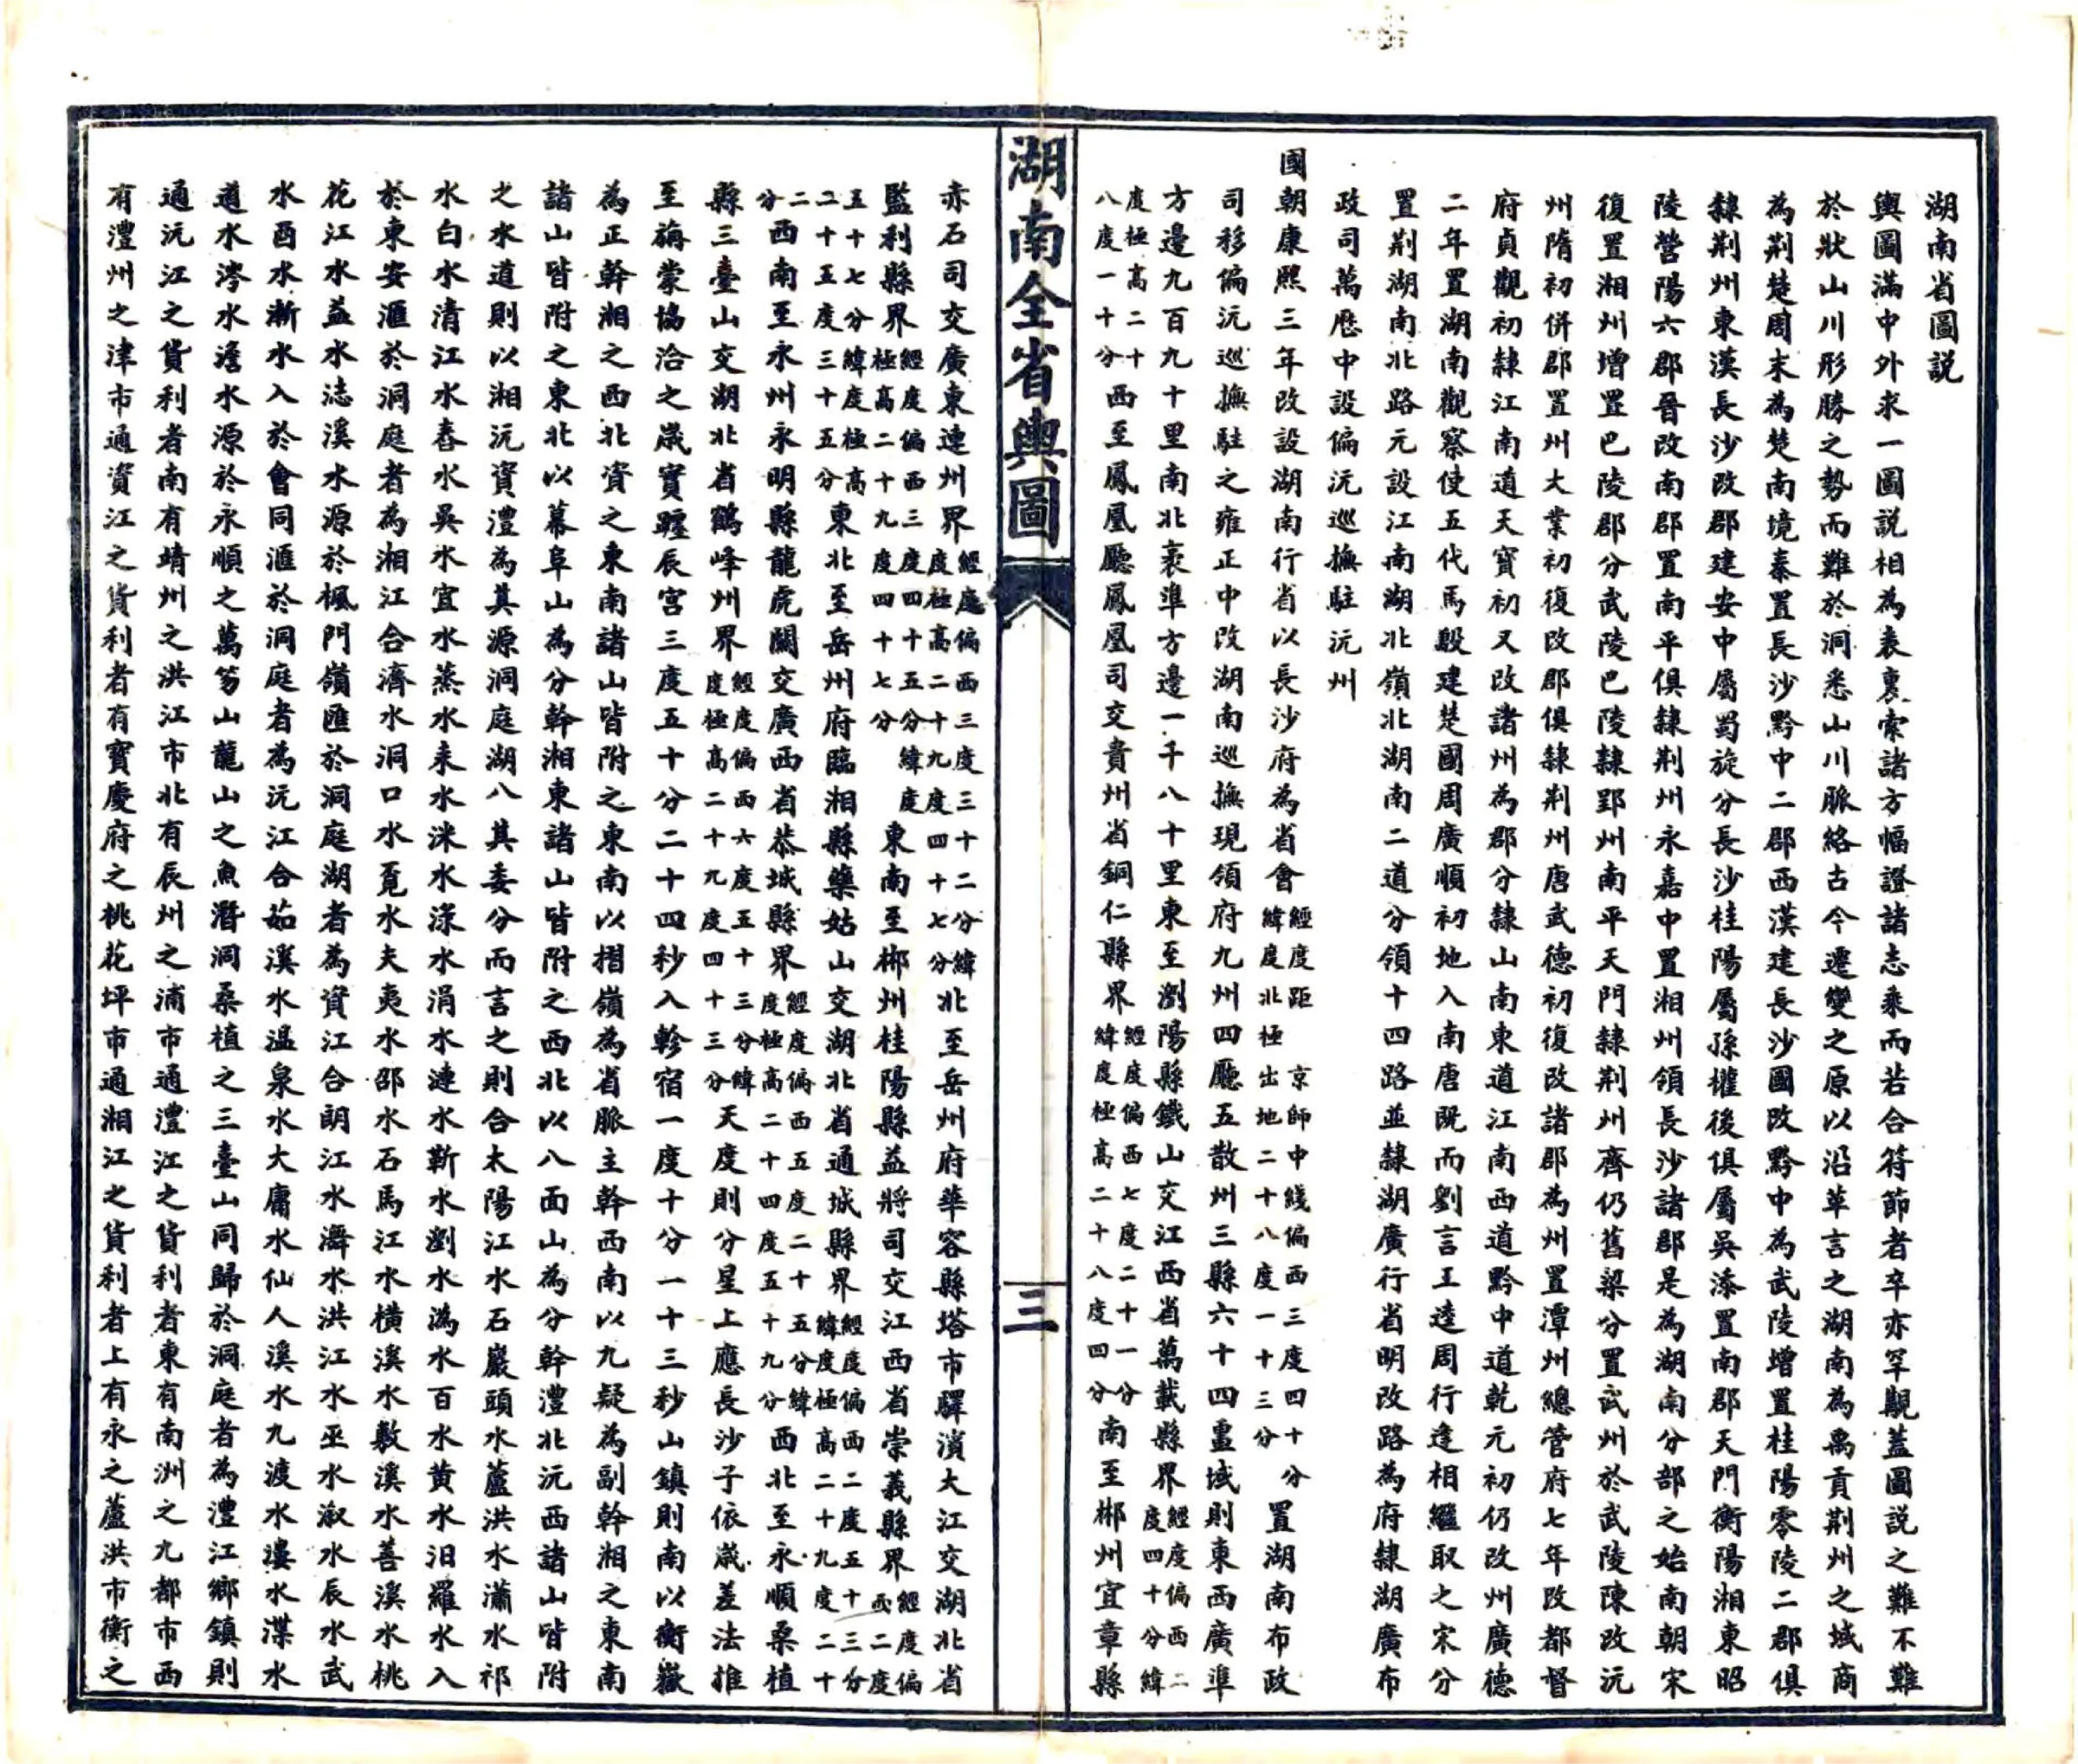 湖南省圖説
輿圖滿中外求一圖説相為表裏索諸方幅證諸志乘而若合符節者卒亦罕覯蓋圖説之難不難
於狀山川形勝之勢而難於洞悉山川脈絡古今遷變之原以沿革言之湖南為禹貢荆州之域商
為荆楚周末為楚南境秦置長沙黔中二郡西漢建長沙國改黔中為武陵增置桂陽零陵二郡俱
隸荆州東漢長沙改郡建安中屬蜀旋分長沙桂陽屬孫權後俱屬吳添置南郡天門衡陽湘東昭
陵營陽六郡晉改南郡置南平俱隸荆州永嘉中置湘州領長沙諸郡是為湖南分部之始南朝宋
復置湘州增置巴陵郡分武陵巴陵隸郢州南平天門隸荆州齊仍舊梁分置武州於武陵陳改沅
州隋初併郡置州大業初復改郡俱隸荆州唐武德初復改諸郡為州置潭州總管府七年改都督
府貞觀初隸江南道天寶初又改諸州為郡分隸山南東道江南西道黔中道乾元初仍改州廣德
二年置湖南觀察使五代馬殷建楚國周廣順初地入南唐既而劉言王逵周行逢相繼取之宋分
置荆湖南北路元設江南湖北嶺北湖南二道分領十四路並隸湖廣行省明改路為府隸湖廣布
政司萬厯中設偏沅巡撫駐沅州
國朝康熙三年改設湖南行省以長沙府為省會經度距京師中綫偏西三度四十分緯度北極出地二十八度一十三分置湖南布政
司移偏沅巡撫駐之雍正中改湖南巡撫現領府九州四廳五散州三縣六十四畺域則東西廣準
方邊九百九十里南北袤準方邊一千八十里東至瀏陽縣鐵山交江西省萬載縣界經度偏西二度四十分緯
度極高二十八度一十分西至鳳凰廳鳳凰司交貴州省銅仁縣界經度偏西七度二十一分緯度極高二十八度四分南至郴州宜章縣
赤石司交廣東連州界經度偏西三度三十二分緯度極高二十九度四十七分北至岳州府華容縣塔市驛濱大江交湖北省
監利縣界經度偏西三度四十五分緯度極高二十九度四十七分東南至郴州桂陽縣益將司交江西省崇義縣界經度偏西二度
五十七分緯度極高二十五度三十五分東北至岳州府臨湘縣藥姑山交湖北省通城縣界經度偏西二度五十三分緯度極高二十九度二十
二分西南至永州永明縣龍虎關交廣西省恭城縣界經度偏西五度二十五分緯度極高二十四度五十九分西北至永順桑植
縣三臺山交湖北省鶴峰州界經度偏西六度五十三分緯度極高二十九度四十三分天度則分星上應長沙子依嵗差法推
至旃蒙協洽之嵗實躔辰宮三度五十分二十四秒入軫宿一度十分一十三秒山鎮則南以衡嶽
為正幹湘之西北資之東南諸山皆附之東南以摺嶺為省脈主幹西南以九疑為副幹湘之東南
諸山皆附之東北以幕阜山為分幹湘東諸山皆附之西北以八面山為分幹澧北沅西諸山皆附
之水道則以湘沅資澧為其源洞庭湖八其委分而言之則合太陽江水石巖頭水蘆洪水瀟水祁
水白水清江水舂水吳水宜水蒸水耒水洣水淥水涓水漣水靳水瀏水溈水百水黄水汨羅水入
於東安滙於洞庭者為湘江合濟水洞口水覔水夫夷水邵水石馬江水橫溪水敷溪水善溪水桃
花江水益水志溪水源於楓門嶺匯於洞庭湖者為資江合朗江水㵲水洪江水巫水溆水辰水武
水酉水漸水入於會同滙於洞庭者為沅江合茹溪水温泉水大庸水仙人溪水九渡水漊水渫水
道水涔水澹水源於永順之萬笏山龍山之魚潛洞桑植之三臺山同歸於洞庭者為澧江鄉鎮則
通沅江之貨利者南有靖州之洪江市北有辰州之浦市通澧江之貨利者東有南洲之九都市西
有澧州之津市通資江之貨利者有寳慶府之桃花坪市通湘江之貨利者上有永之蘆洪市衡之
湖南全省輿圖
三